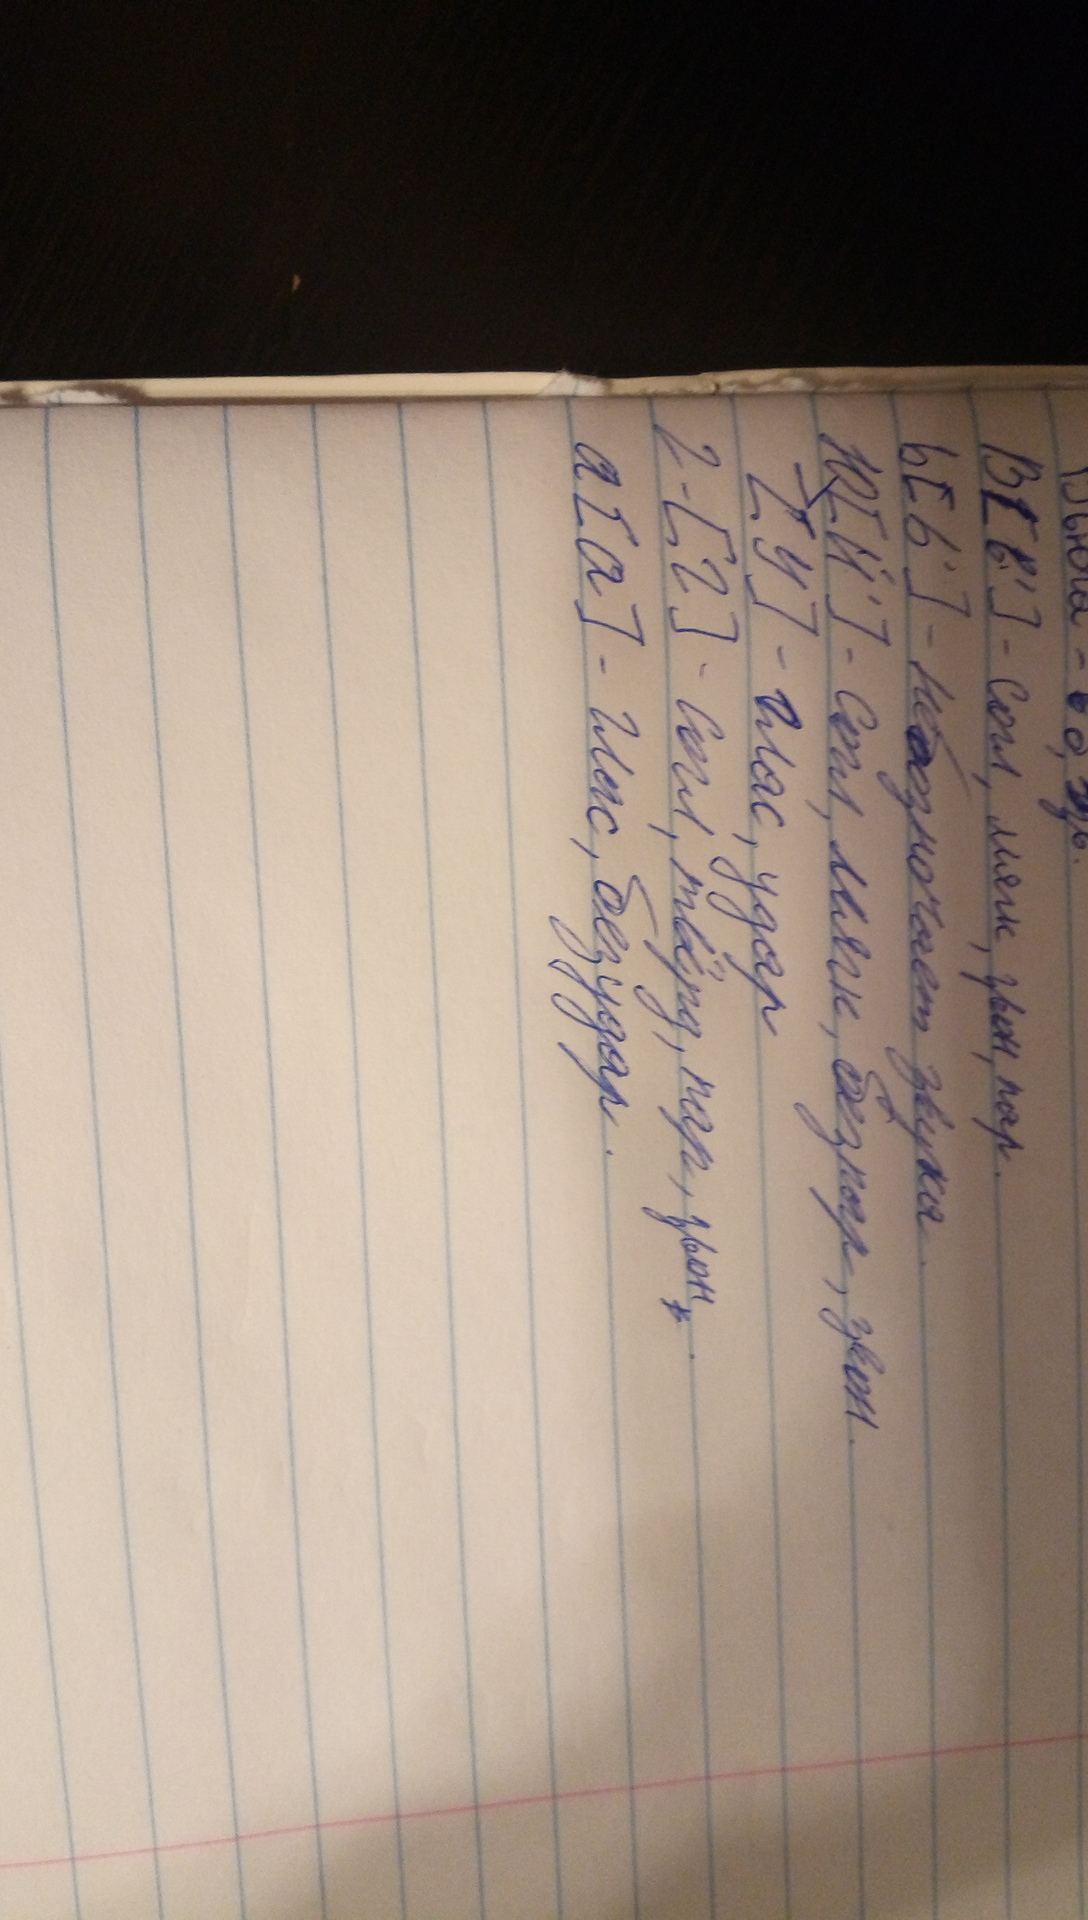 Вьюга - 6 б, зв.
В[в'] - согл, мягк, звон, пар.
ь[ь'] - необозночает звукка.
Ю[й'] - согл, мягк, безпар, звон.
[у] - глас, удар
г - [г] - согл, твёрд, пар, звон.
а[а] - глас, безудар.